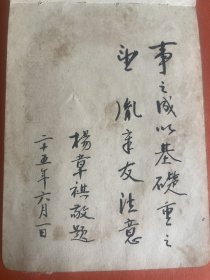 事之成以基礎重之
望 胤章友注意
楊章祺敬題
二十五年六月一日